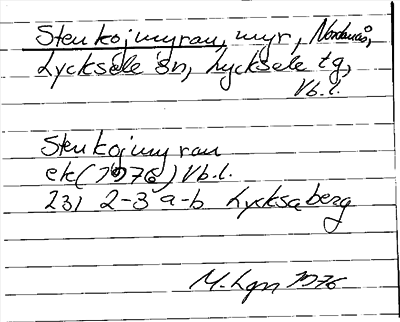 Stenkojmyran, myr, Nordanås,
Lycksele sn, Lycksele tg,
Vb.l.
Stenkojmyran
ek (1976) Vb.l.
23J 2-3 a-b Lycksaberg
M. Lgn 1976